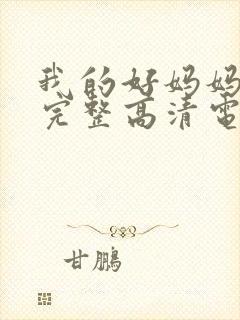 我的好妈妈
完整高清電
甘鵬